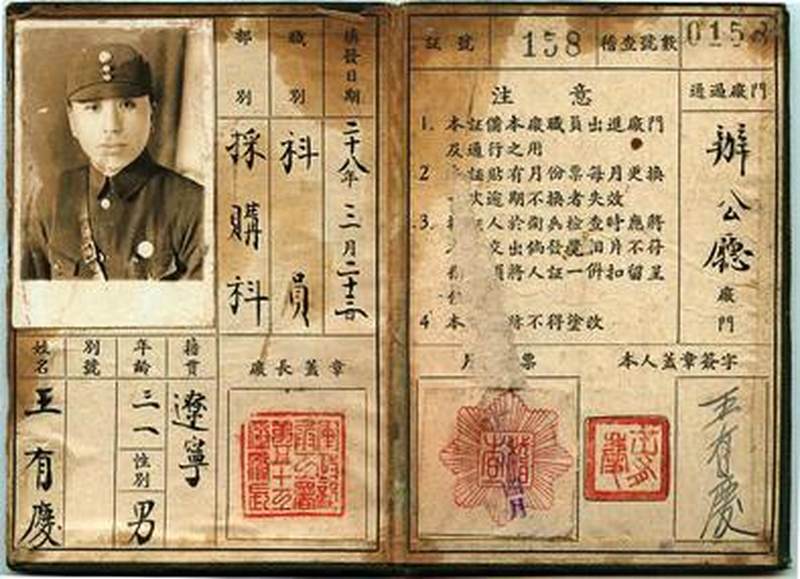 填發日期
二十八年三月二十二日
職別
科員
部別
採購科
籍貫
遼寧
年齡
三一
性別
男
別號
姓名
王有慶
廠長蓋章
証號
158
稽查號數
015
通過廠門
辦公廳
廠門
注意
1. 本証備本廠職員出進廠門
及通行之用
2 証貼有月份票每月更換
次逾期不換者失效
3. 人於衛兵檢查時應將
交出倘發覺相片不符
將人証一併扣留呈
4 本 不得塗改
月 票
本人蓋章簽字
月
王有慶